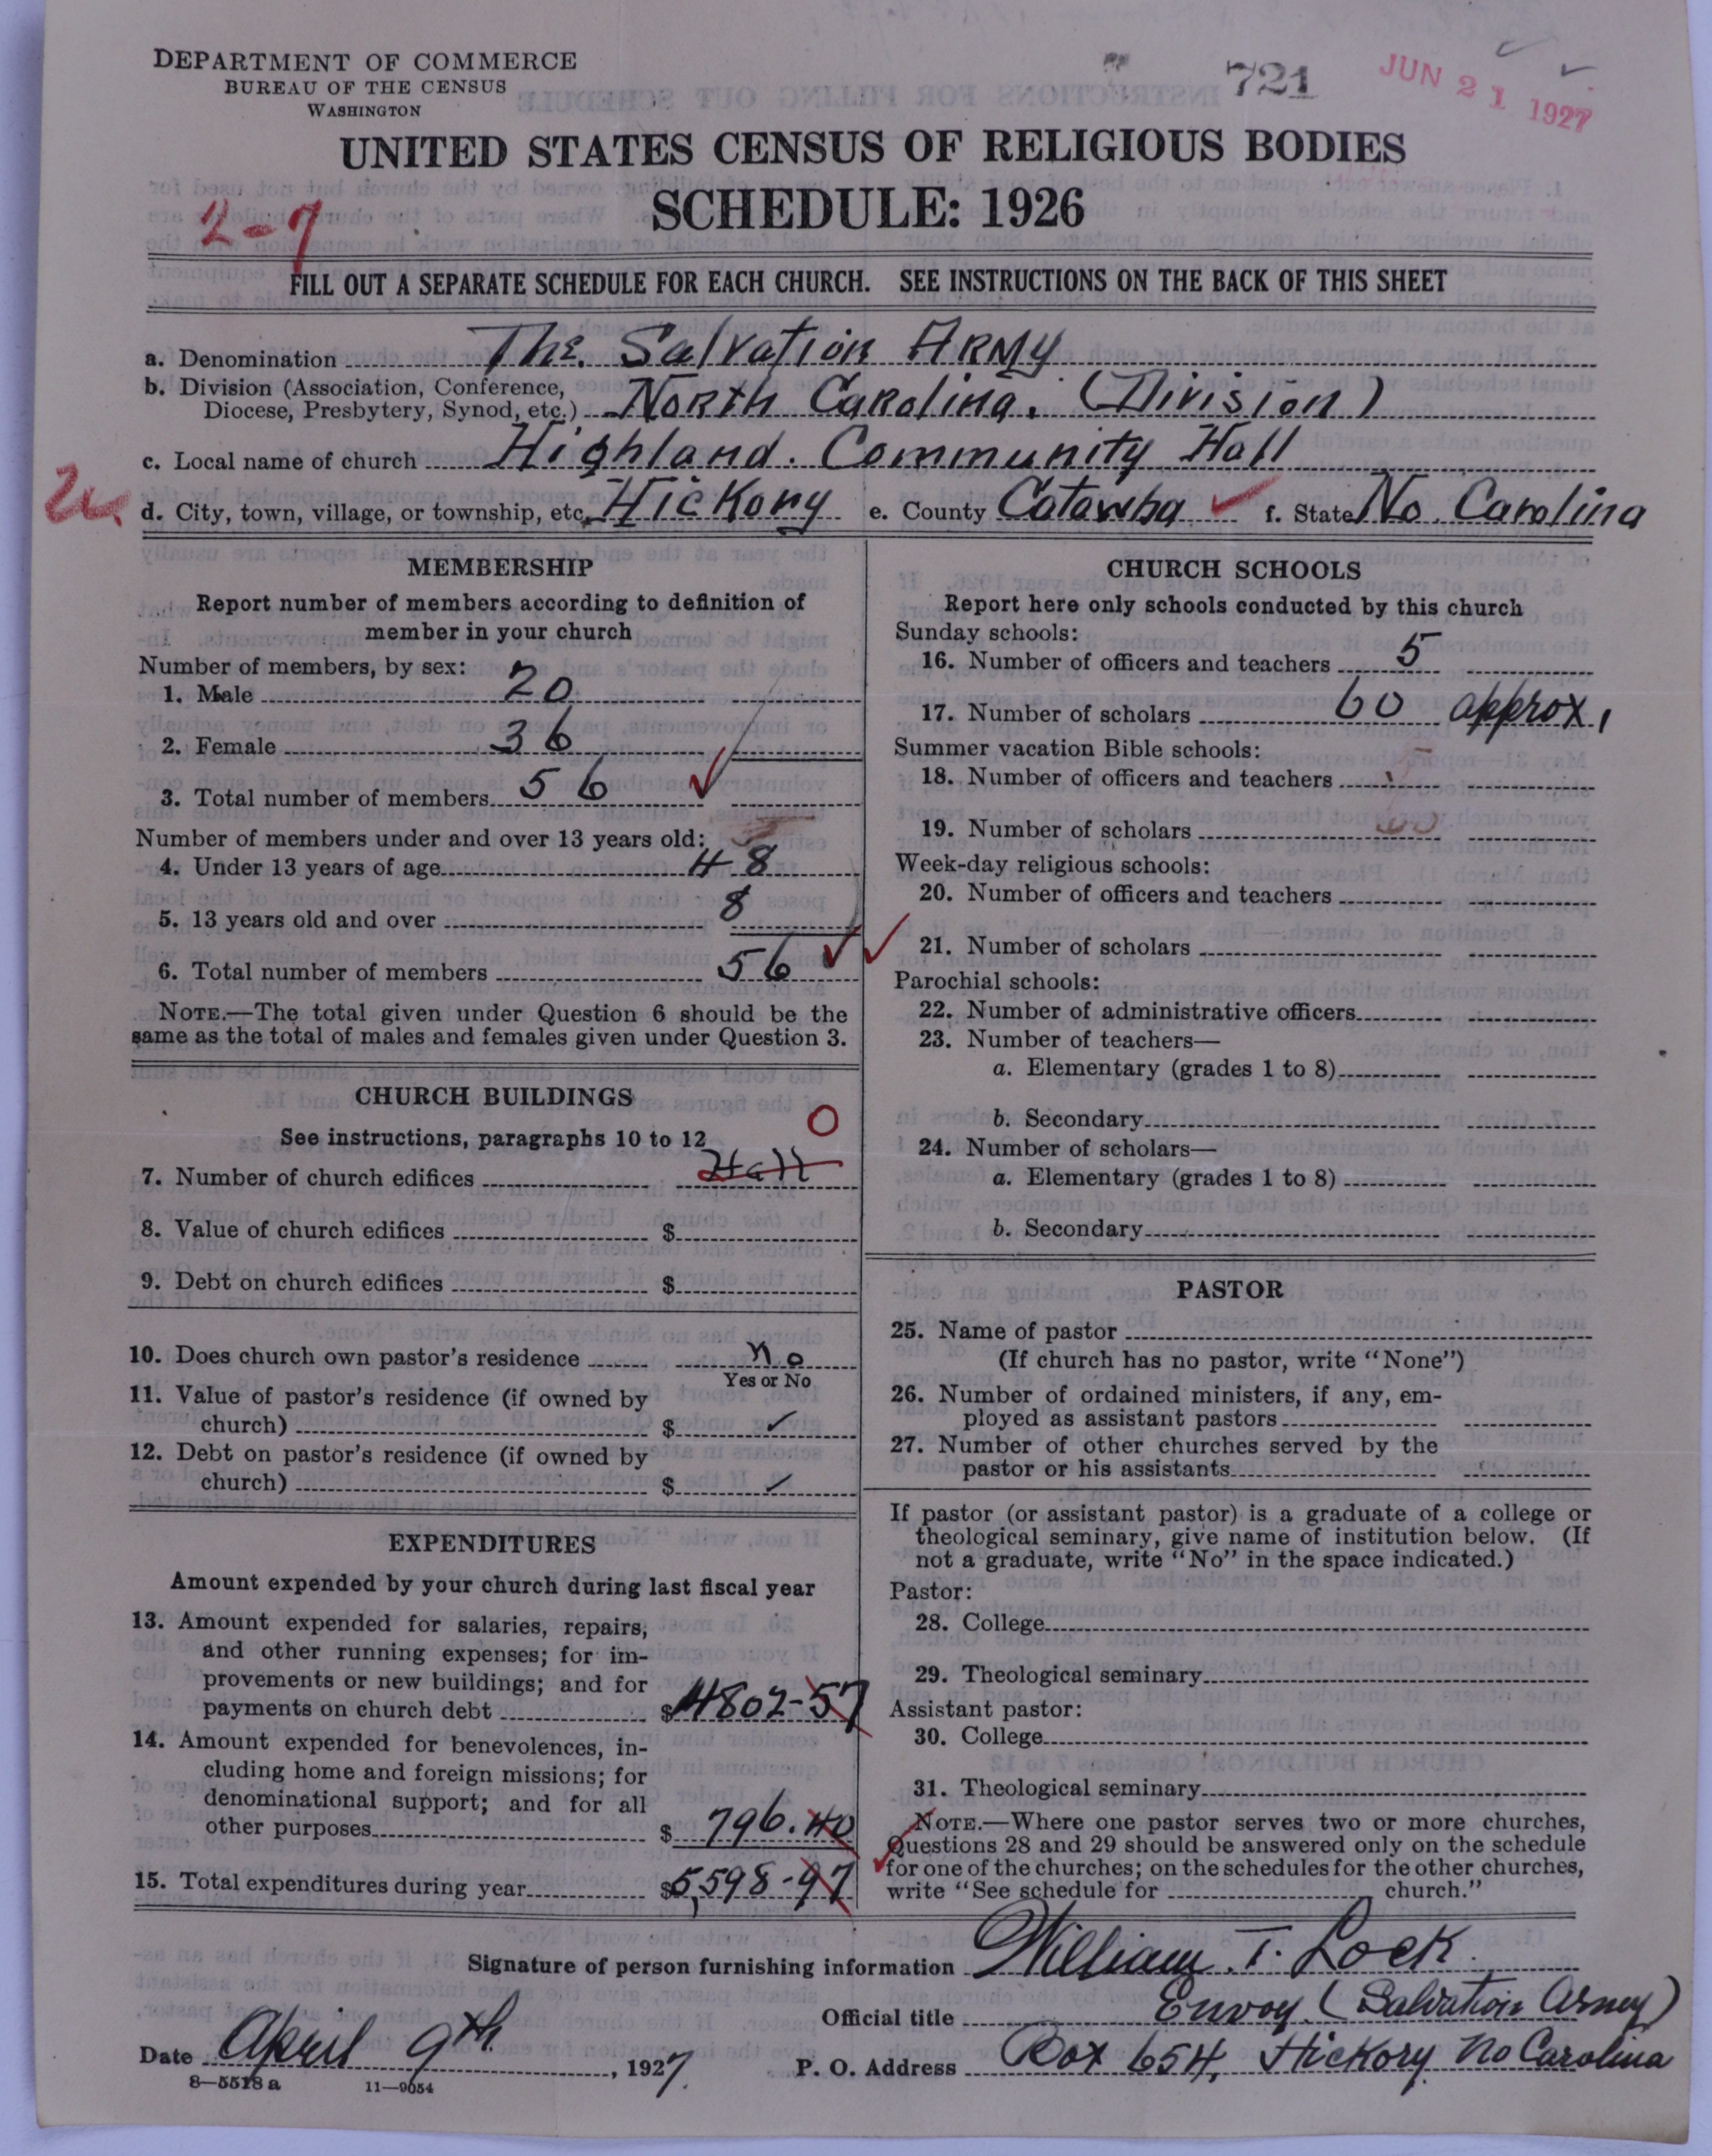 DEPARTMENT OF COMMERCE
BUREAU OF THE CENSUS
WASHINGTON
721
JUN 21 1927
UNITED STATES CENSUS OF RELIGIOUS BODIES
SCHEDULE: 1926
2-7
FILL OUT A SEPARATE SCHEDULE FOR EACH CHURCH. SEE INSTRUCTIONS ON THE BACK OF THIS SHEET
a. Denomination The Salvation Army
b. Division (Association, Conference,
Diocese, Presbytery, Synod, etc.) North Carolina. (Division)
c. Local name of church Highland. Community Hall
d. City, town, village, or township, etc. Hickony e. County Catawba f. State No. Carolina
MEMBERSHIP
Report number of members according to definition of
member in your church
Number of members, by sex:
1. Male 20
2. Female 36
3. Total number of members 56
Number of members under and over 13 years old:
4. Under 13 years of age 48
5. 13 years old and over 8
6. Total number of members 56
NOTE.—The total given under Question 6 should be the
same as the total of males and females given under Question 3.
CHURCH BUILDINGS
See instructions, paragraphs 10 to 12
0
7. Number of church edifices Hall
8. Value of church edifices $
9. Debt on church edifices $
10. Does church own pastor's residence no
Yes or No
11. Value of pastor's residence (if owned by
church) $ ✓
12. Debt on pastor's residence (if owned by
church) $ ✓
EXPENDITURES
Amount expended by your church during last fiscal year
13. Amount expended for salaries, repairs,
and other running expenses; for im-
provements or new buildings; and for
payments on church debt $4802-57
14. Amount expended for benevolences, in-
cluding home and foreign missions; for
denominational support; and for all
other purposes $ 796.40
15. Total expenditures during year $5,598-97
CHURCH SCHOOLS
Report here only schools conducted by this church
Sunday schools:
16. Number of officers and teachers 5
17. Number of scholars 60 approx.
Summer vacation Bible schools:
18. Number of officers and teachers
19. Number of scholars
Week-day religious schools:
20. Number of officers and teachers
21. Number of scholars
Parochial schools:
22. Number of administrative officers
23. Number of teachers—
a. Elementary (grades 1 to 8)
b. Secondary
24. Number of scholars—
a. Elementary (grades 1 to 8)
b. Secondary
PASTOR
25. Name of pastor
(If church has no pastor, write "None")
26. Number of ordained ministers, if any, em-
ployed as assistant pastors
27. Number of other churches served by the
pastor or his assistants
If pastor (or assistant pastor) is a graduate of a college or
theological seminary, give name of institution below. (If
not a graduate, write "No" in the space indicated.)
Pastor:
28. College
29. Theological seminary
Assistant pastor:
30. College
31. Theological seminary
NOTE.—Where one pastor serves two or more churches,
Questions 28 and 29 should be answered only on the schedule
for one of the churches; on the schedules for the other churches,
write "See schedule for church."
Signature of person furnishing information William T. Lock.
Official title Envoy. (Salvation Army)
Date April 9th, 1927. P. O. Address Box 654, Hickory No Carolina
8—5518 a 11—9054